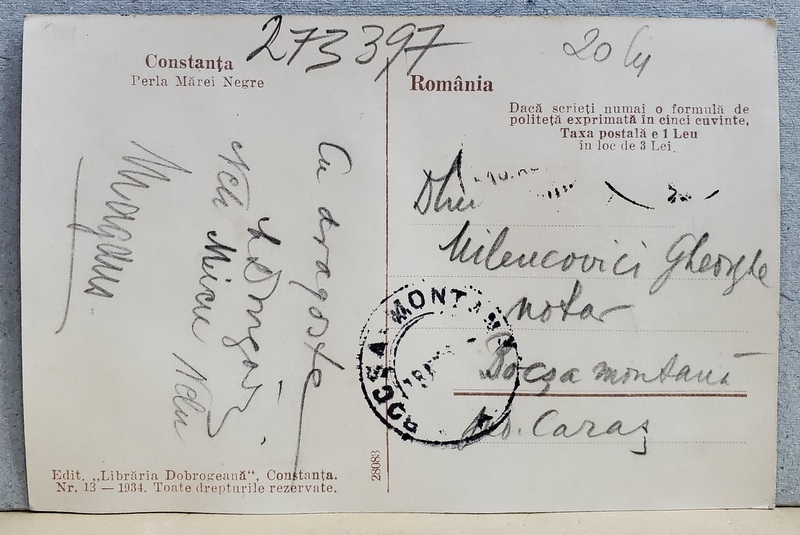 273397
20
Constanța
Perla Mărei Negre
România
Dacă scrieți numai o formulă de
politeță exprimată în cinci cuvinte,
Taxa postală e 1 Leu
în loc de 3 Lei.
Cu dragoste
Nelu Micu Nelu
Dlui
Milencovici Gheorghe
notar
Bocșa montană
Jud. Caraș
BOCȘA-MONTANĂ
28083
Edit. „Librăria Dobrogeană“, Constanța.
Nr. 13 — 1934. Toate drepturile rezervate.